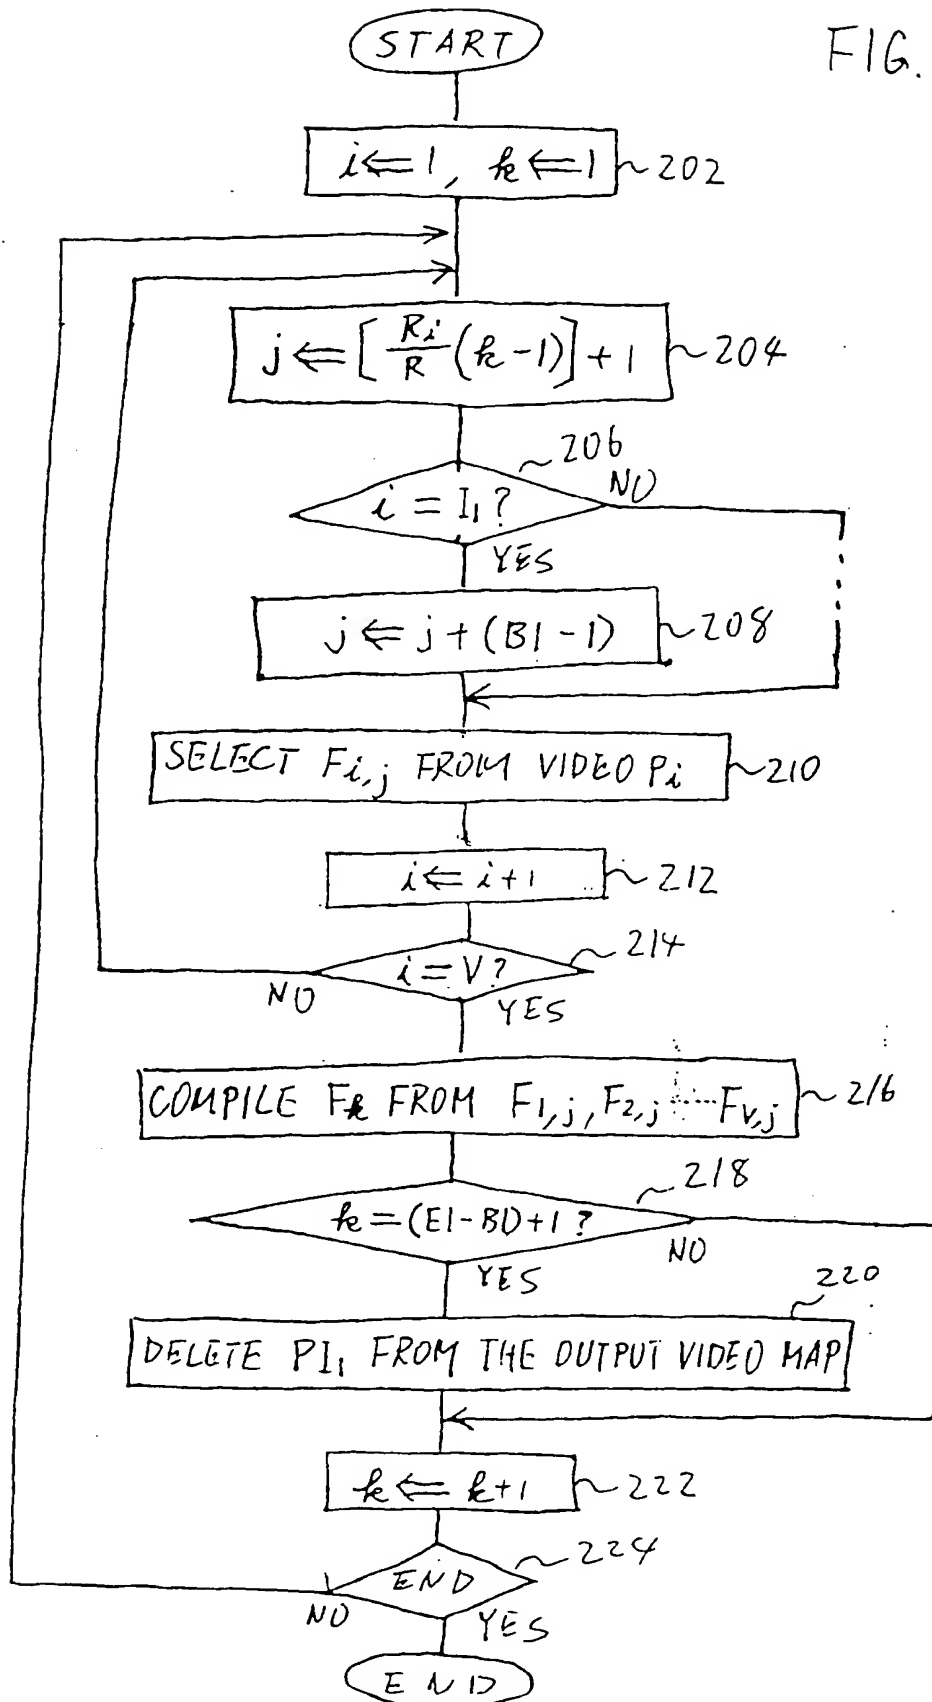 START
FIG.
i⇐1, k⇐1
202
j⇐[Ri/R (k-1)]+1
204
206
i = I1?
NO
YES
j⇐j+(B1-1)
208
SELECT Fi,j FROM VIDEO Pi
210
i⇐i+1
212
214
i=V?
NO
YES
COMPILE Fk FROM F1,j, F2,j ····· Fv,j
216
218
k=(E1-B1)+1?
NO
YES
220
DELETE PI1 FROM THE OUTPUT VIDEO MAP
k⇐k+1
222
224
END
NO
YES
END